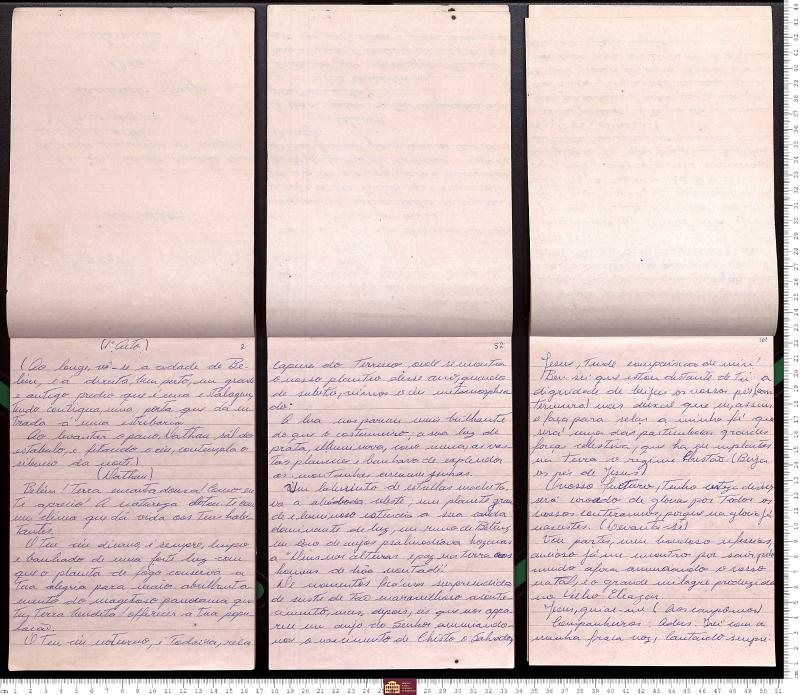 (1º Acto) 2
(Ao longe, vê-se a cidade de Be-
lém, e á direita, bem perto, um grande
e antigo predio que é uma estalagem,
tendo contigua, uma porta que dá en-
trada a uma estribaria.
Ao levantar o pano, Nathan sái do
estabulo, e fitando o céu, contempla o
silencio da noite)
(Nathan)
Belém! Terra encantadora! Como eu
te aprecio! A natureza dotou-te com
um clima que dá vida aos teus habi-
tantes.
O Teu céu diurno, é sempre, limpo
e banhado de uma forte luz com
que o planeta de fogo conserva a
tua alegria para maior abrilhanta
mento do magestoso panorama que
tu, Terra bendita! offerece a tua popu-
lação.
O Teu céu noturno, é Todavia, rela
52
capura do Terreno, onde se encontra
o nosso plantio desse ano, quando
de subito, vimos o céu metamorphosea
do:
A lua nos pareceu mais brilhante
do que o costumeiro; a sua luz de
prata, illuminava, como nunca, as vas-
tas planicies e banhava de explendor
as montanhas circumvisinhas.
Um labirinto de estrellas modula-
va a abobada celeste, um planeta gran
de e luminoso estendia a sua cauda
dominante de luz, em rumo de Belém,
um côro de anjos psalmodiava hozanas
a "Deus nas alturas e paz na Terra aos
homens de bôa vontade".
De momentos ficámos surprehendidos
de susto de tão maravilhoso aconte-
cimento, mas, depois, eis que nos appa-
rece um anjo do Senhor annunciando-
nos o nascimento de Christo o Salvador,
101
Jesus, Tende compaixão de mim!
Bem sei que estou distante de Ti a
dignidade de beijar os vossos pés (com
ternura) mas deixai que eu, assim
o faça para selar a minha fé que
será uma das particulas grandes
forças celestiais, que ha de implantar
na terra o regime Christão (Beija
os pés de Jesus)
O nosso futuro, tenho certeza disso,
será coroado de glorias por todos os
vossos conterraneos, porque na gloria já
nascestes. (Levanta-se)
Vou partir, meu bondoso Messias,
ancioso já me encontro por sair pelo
mundo afora annunciando o vosso
natal, e o grande milagre produzido
no velho Eleazar.
Jesus, guiai-me! (Aos camponios)
Companheiros: Adeus. Irei com a
minha fraca voz, cantando sempre